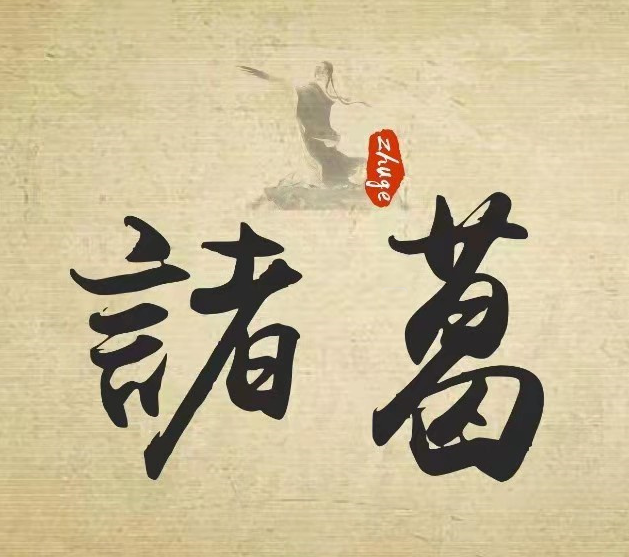 zhuge
諸葛